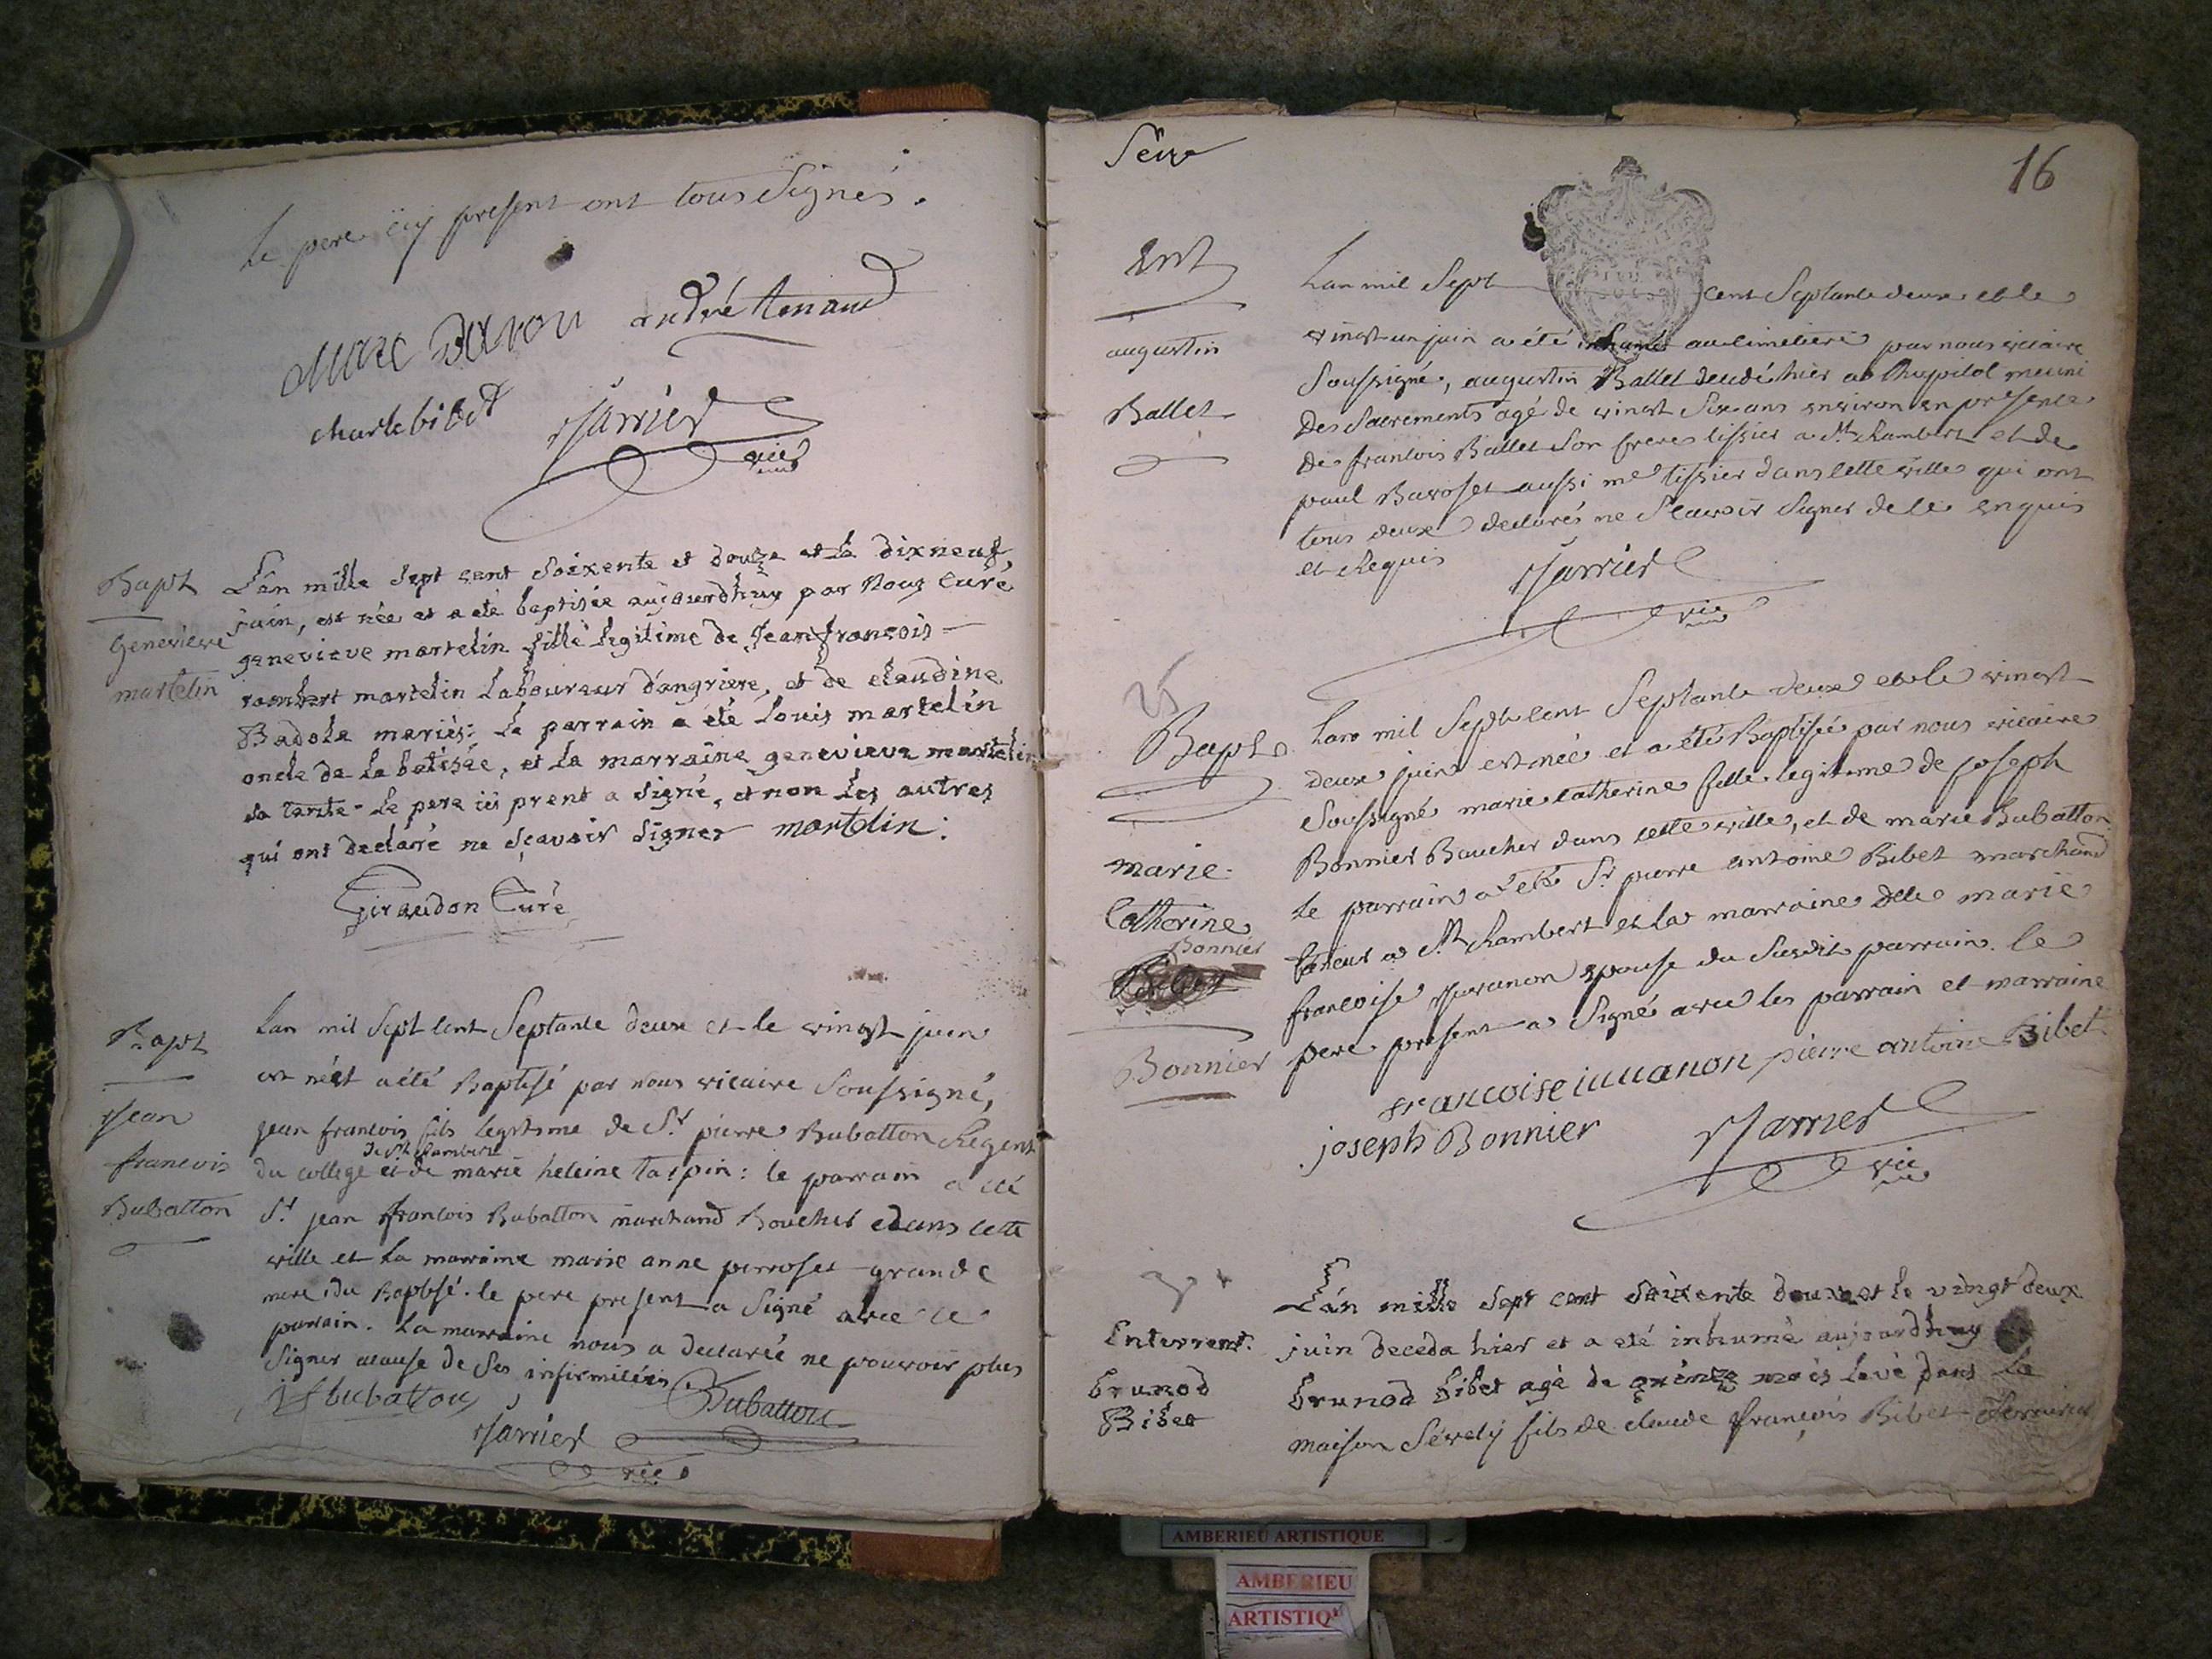 Le pere icy present ont tous Signés.
andré tenand
charle bibet
Jarrier
vic
Bapt
Genevieve
martelin
L'an mille sept cent soixente et douze et le dixneuf
juin, est née et a eté baptisée aujourdhuy par Nous Curé
genevieve martelin fille legitime de Jean françois
rambert martelin Laboureur d'angriere, et de claudine
Badola mariés; Le parrain a été Louis martelin
oncle de la batisée, et la marraine genevieve martelin
sa tante. Le pere ici prent a signé, et non Les autres
qui ont declaré ne sçavoir signer martelin:
Giraudon Curé
Bapt
Jean
francois
Bubatton
Lan mil Sept Cent Septante deux et le vingt juin
est né et a été Baptisé par Nous vicaire Soussigné,
jean francois fils legitime de Sr. pierre Bubatton Regent
de St Rambert
du college et de marie heleine tarpin: le parrain a été
Sr. jean francois Bubatton marchand Boucher dans cette
ville et la marraine marie anne perroset grande
mere du Baptisé. le pere present a Signé avec le
parrain. La marraine nous a declarée ne pouvoir plus
Signer acause de Ses infirmitées
jf bubatton
Bubatton
Jarrier
vic
16
Ent
augustin
Ballet
Lan mil Sept cent Septante deux et le
vingt un juin a été inhumé au cimetiere par nous vicaire
Soussigné, augustin Ballet decedé hier a Lhopital muni
Des Sacrements agé de vingt Six ans environ en presence
De francois Ballet Son frere tissier a St. Rambert et de
paul Baroset aussi me tissier dans cette ville qui ont
tous deux declarés ne Scavoir Signer de ce enquis
et Requis
Jarrier
vic
25
Bapt
marie
Catherine
Bonnier
Bonnier
Lan mil Sept Cent Septante deux et le vingt
deux juin est née et a été Baptisée par nous vicaire
Soussigné marie Catherine fille legitime de joseph
Bonnier Boucher dans cette ville, et de marie Bubatton
Le parrain a été Sr. pierre antoine Bibet marchand
taneur a St. Rambert et la marraine Delle marie
francoise Juvanon epouse du Susdit parrain. le
pere present a Signé avec les parrain et marraine
francoise iuuanon pierre antoine Bibet
joseph Bonnier
Jarrier
vic
Enterremt.
brunod
Bibet
L'an mille sept cent soixente douze et le vingt deux
juin deceda hier et a eté inhumé aujourdhuy
brunod bibet agé de quinze mois Levé dans La
maison Sévely fils de claude françois Bibet
AMBERIEU ARTISTIQUE
AMBERIEU
ARTISTIQ